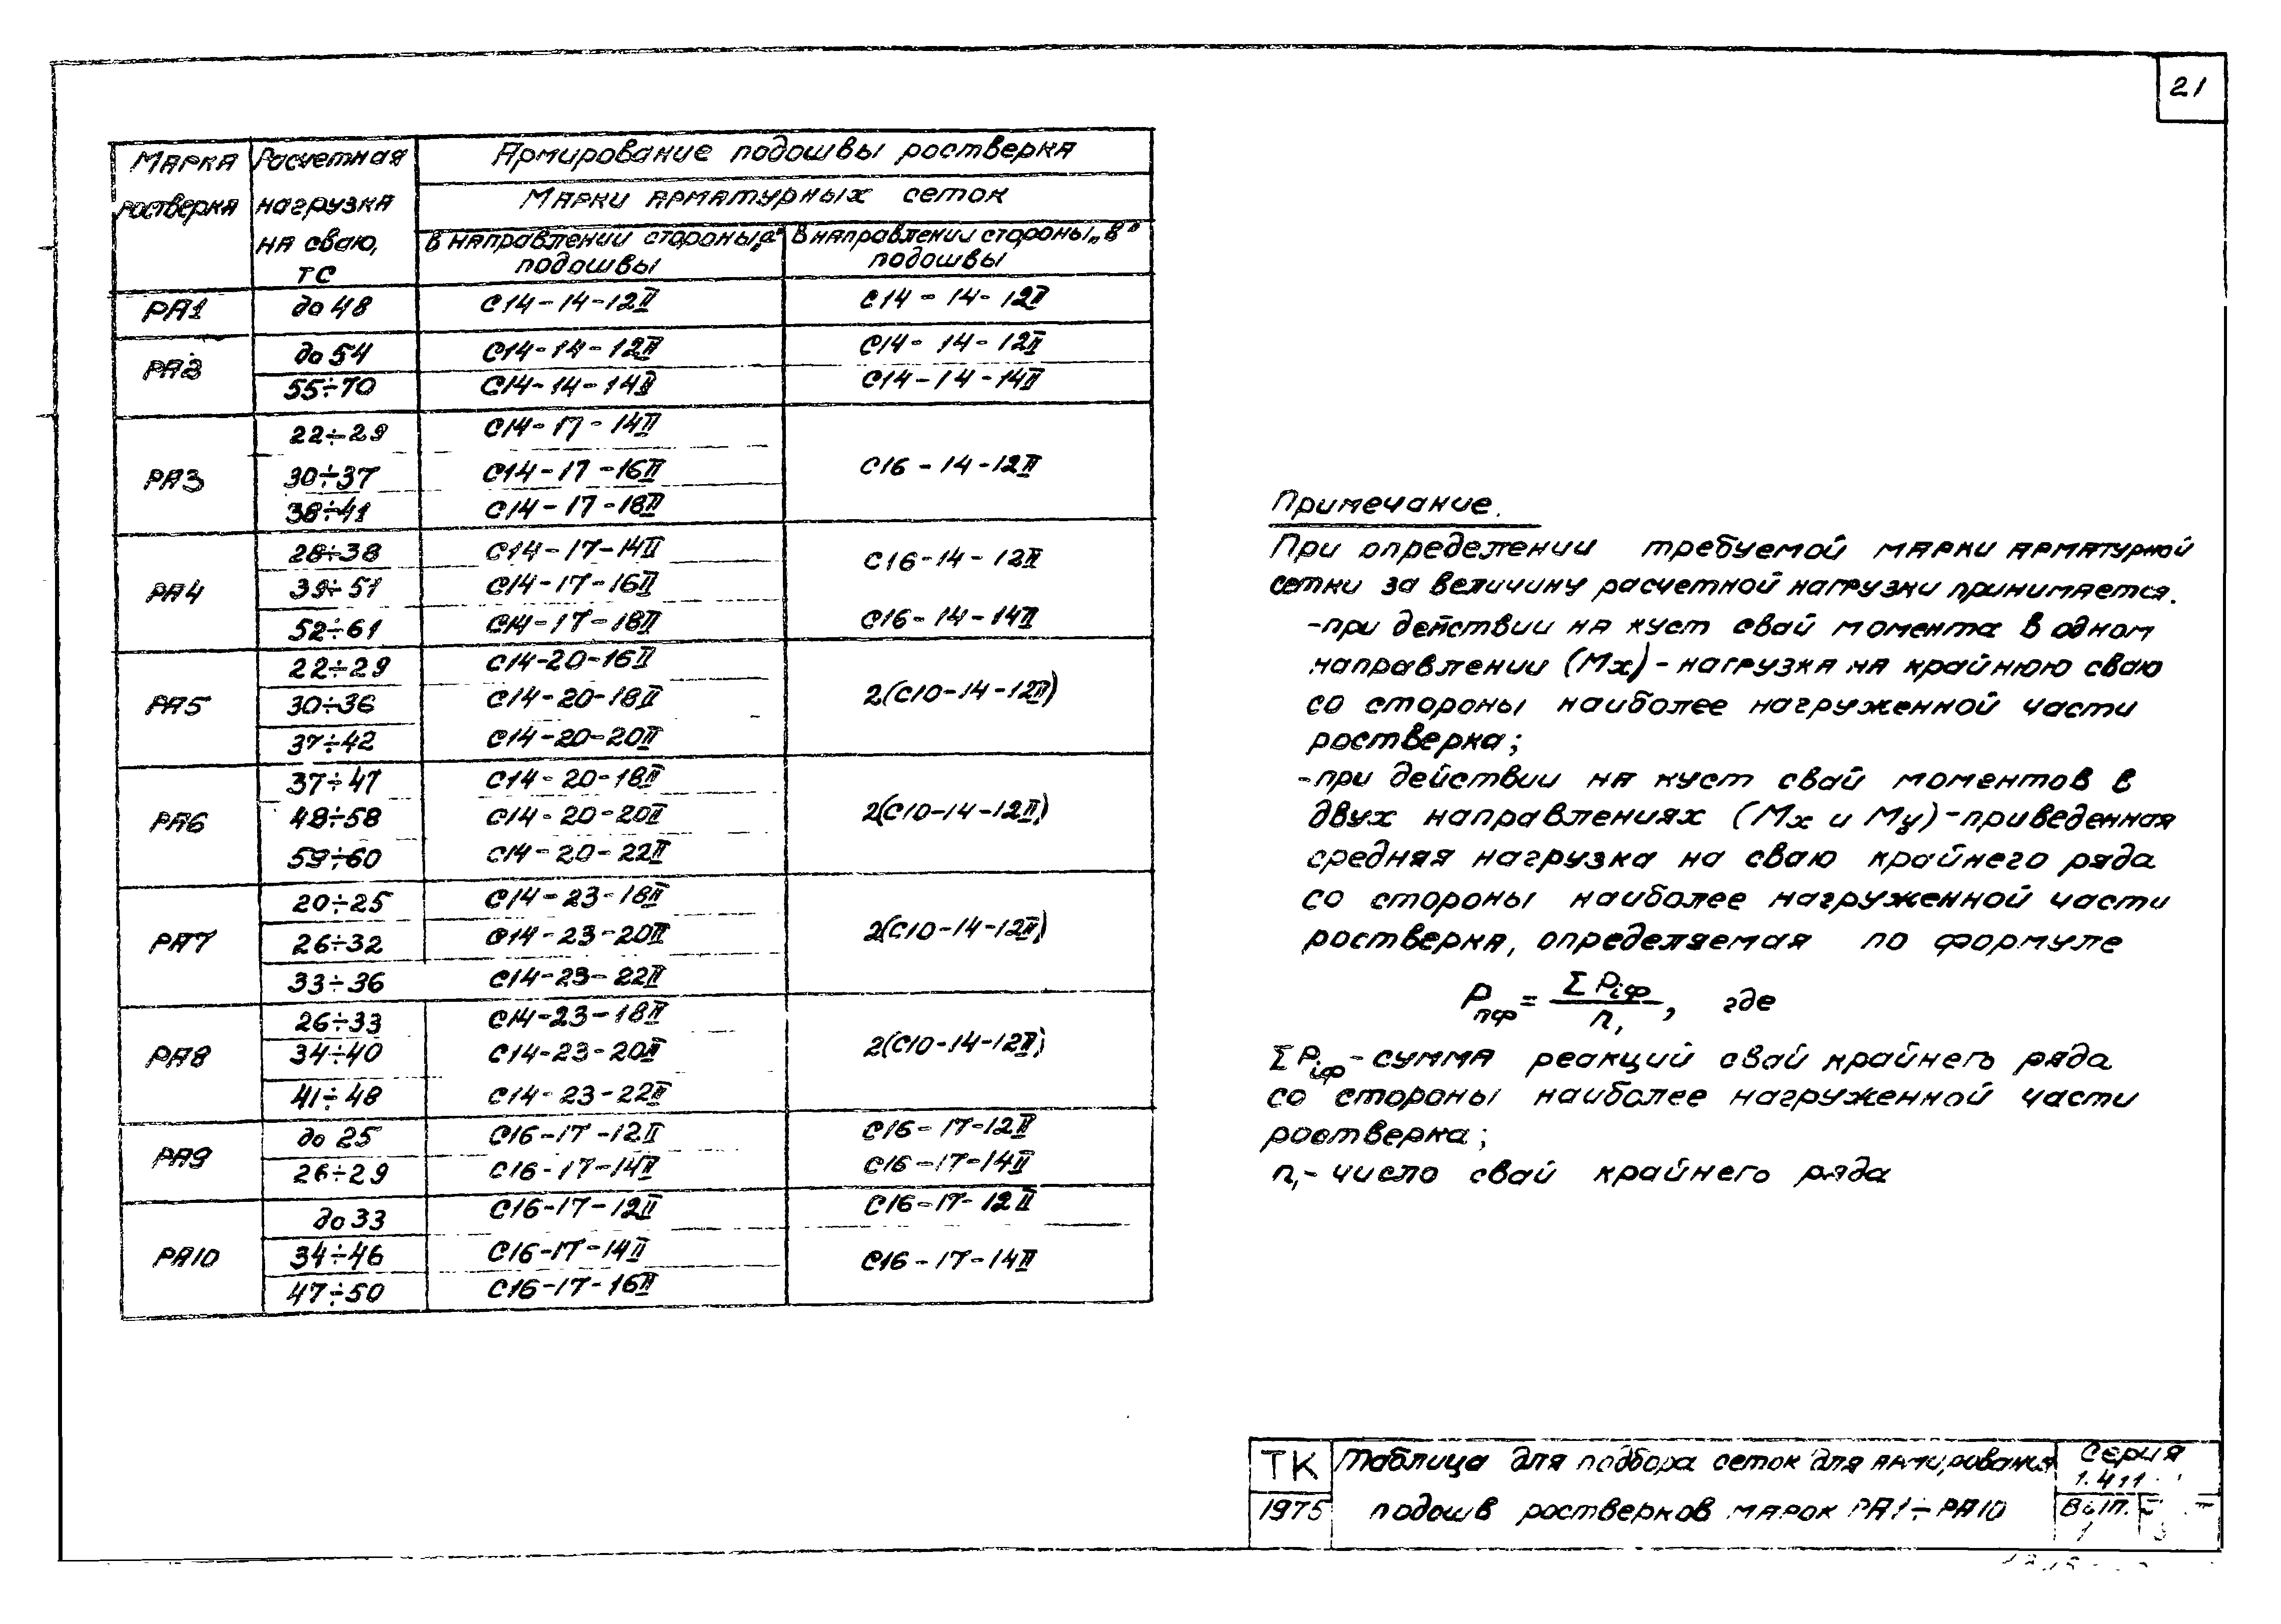 21
Марка Расчетная Армирование подошвы ростверка
ростверка нагрузка Марки арматурных сеток
на сваю, В направлении стороны „а" В направлении стороны „в"
тс подошвы подошвы
РА1 до 48 С14-14-12II С14-14-12II
РА2 до 54 С14-14-12II С14-14-12II
55÷70 С14-14-14II С14-14-14II
РА3 22÷29 С14-17-14II С16-14-12II
30÷37 С14-17-16II
38÷41 С14-17-18II
РА4 28÷38 С14-17-14II С16-14-12II
39÷51 С14-17-16II
52÷61 С14-17-18II С16-14-14II
РА5 22÷29 С14-20-16II 2(С10-14-12II)
30÷36 С14-20-18II
37÷42 С14-20-20II
РА6 37÷47 С14-20-18II 2(С10-14-12II)
48÷58 С14-20-20II
59÷60 С14-20-22II
РА7 20÷25 С14-23-18II 2(С10-14-12II)
26÷32 С14-23-20II
33÷36 С14-23-22II
РА8 26÷33 С14-23-18II 2(С10-14-12II)
34÷40 С14-23-20II
41÷48 С14-23-22II
РА9 до 25 С16-17-12II С16-17-12II
26÷29 С16-17-14II С16-17-14II
РА10 до 33 С16-17-12II С16-17-12II
34÷46 С16-17-14II С16-17-14II
47÷50 С16-17-16II
Примечание.
При определении требуемой марки арматурной
сетки за величину расчетной нагрузки принимается.
-при действии на куст свай момента в одном
направлении (Мх)-нагрузка на крайнюю сваю
со стороны наиболее нагруженной части
ростверка;
-при действии на куст свай моментов в
двух направлениях (Мх и Му)-приведенная
средняя нагрузка на сваю крайнего ряда
со стороны наиболее нагруженной части
ростверка, определяемая по формуле
Pпф = ΣPiф / n₁, где
ΣPiф-сумма реакций свай крайнего ряда
со стороны наиболее нагруженной части
ростверка;
n₁-число свай крайнего ряда
ТК Таблица для подбора сеток для армирования Серия
1.411
1975 подошв ростверков марок РА1÷РА10 Вып.
1